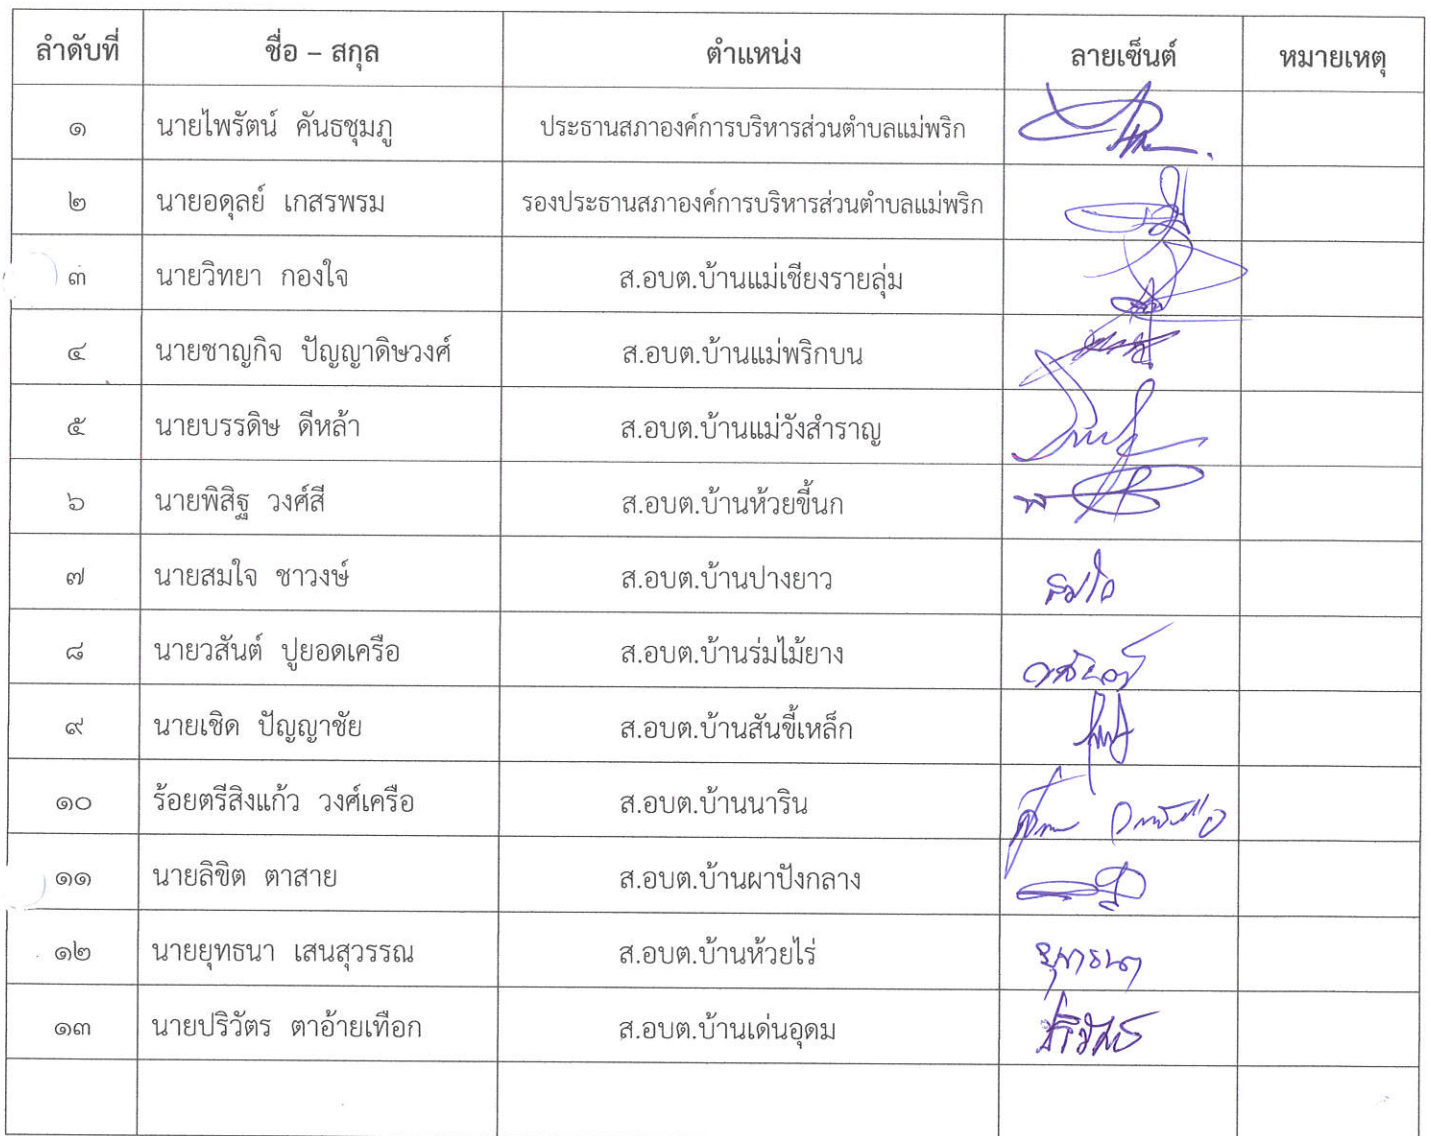 ลำดับที่ ชื่อ – สกุล ตำแหน่ง ลายเซ็นต์ หมายเหตุ
๑ นายไพรัตน์ คันธชุมภู ประธานสภาองค์การบริหารส่วนตำบลแม่พริก
๒ นายอดุลย์ เกสรพรม รองประธานสภาองค์การบริหารส่วนตำบลแม่พริก
๓ นายวิทยา กองใจ ส.อบต.บ้านแม่เชียงรายลุ่ม
๔ นายชาญกิจ ปัญญาดิษวงศ์ ส.อบต.บ้านแม่พริกบน
๕ นายบรรดิษ ดีหล้า ส.อบต.บ้านแม่วังสำราญ
๖ นายพิสิฐ วงศ์สี ส.อบต.บ้านห้วยขี้นก
๗ นายสมใจ ชาวงษ์ ส.อบต.บ้านปางยาว สมใจ
๘ นายวสันต์ ปูยอดเครือ ส.อบต.บ้านร่มไม้ยาง วสันต์
๙ นายเชิด ปัญญาชัย ส.อบต.บ้านสันขี้เหล็ก
๑๐ ร้อยตรีสิงแก้ว วงศ์เครือ ส.อบต.บ้านนาริน
๑๑ นายลิขิต ตาสาย ส.อบต.บ้านผาปังกลาง
๑๒ นายยุทธนา เสนสุวรรณ ส.อบต.บ้านห้วยไร่ ยุทธนา
๑๓ นายปริวัตร ตาอ้ายเทือก ส.อบต.บ้านเด่นอุดม